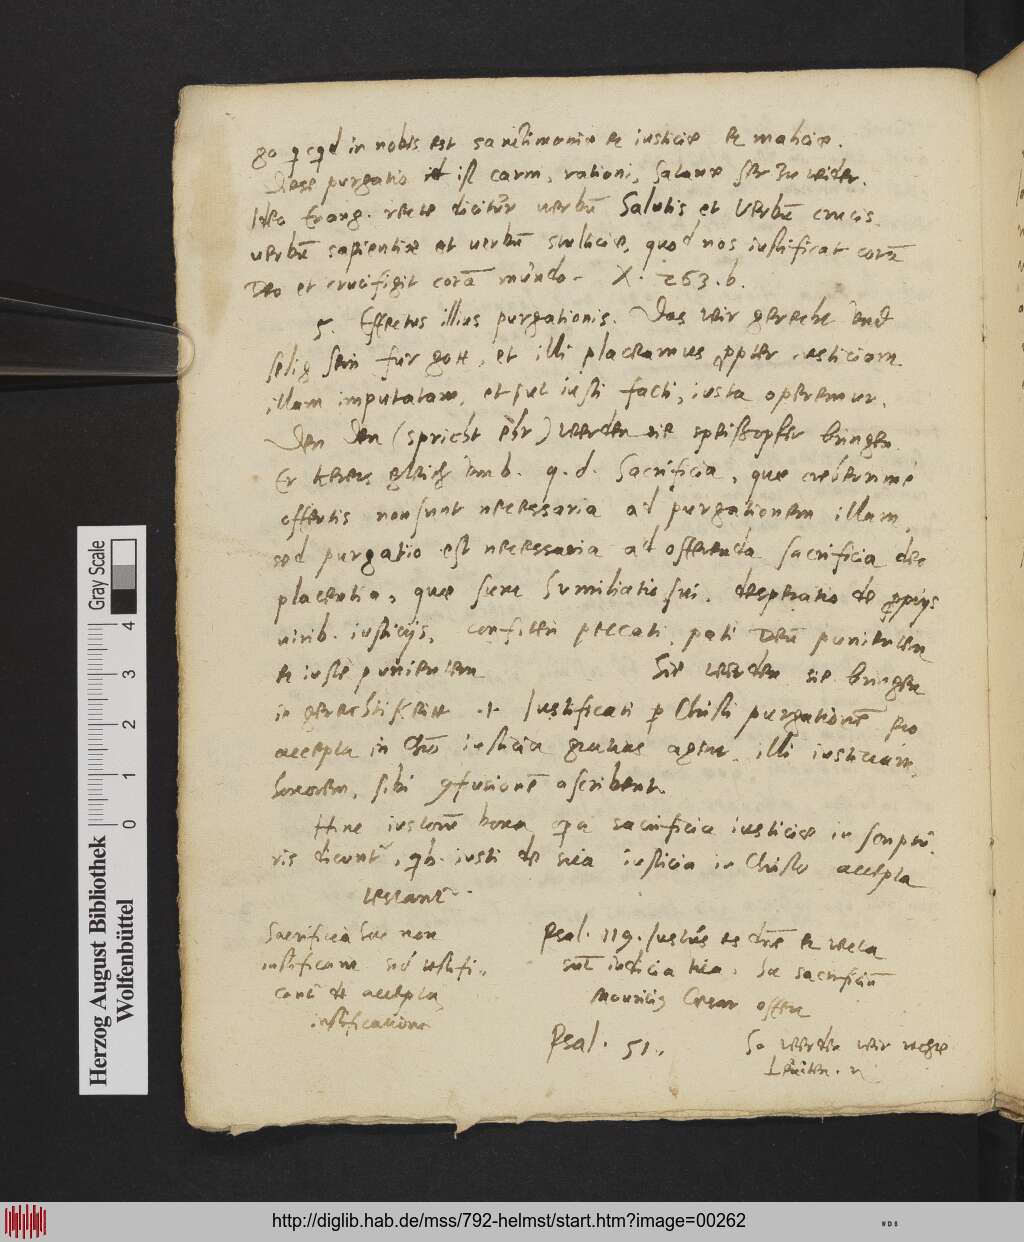 go qcqd in nobis est sanctimoniae et iusticiae et maliciae.
Diese purgatio ist carni, rationi, Satanae ser zu wider.
Ideo Evang. recte dicitur verbū Salutis et Verbū crucis.
verbū sapientiae et verbū stulticiae, quod nos iustificat corā
Deo et crucifigit corā mundo. X. 263.b.
5. Effectus illius purgationis. Das wir gerecht und
selig sein fur gott, et illi placeamus ppter iusticiam
illam imputatam, et sic iusti facti, iusta operemur.
Den Den (spricht ehr) werden sie speißopfer bringen
Er kerets gleich umb. q.d. Sacrificia, quae creberrime
offertis non sunt necessaria ad purgationem illam,
sed purgatio est necessaria ad offerenda sacrificia deo
placentia, quae sunt humiliatio sui, desperatio de ppijs
virib. iusticijs, confiteri peccati, pati Deū punientem
et iuste punientem Sie werden sie bringen
in gerechtikeitt .i. Iustificati p Christi purgationē pro
accepta in Chro iusticia gratias agent, illi iusticiam,
honorem, sibi confusionē ascribent.
Hinc iustorū bona opera sacrificia iusticiae in scriptu
ris dicunt, qb. iusti de sua iusticia in Christo accepta
testant
Sacrificia haec non
iustificant sed testifi
cant de accepta
iustificatione
Psal. 119. Iustus es dne et recta
sūt iudicia tua. hoc sacrificiū
Mauritius Cesar offert
Psal. 51. So werden wir
Herzog August Bibliothek
Wolfenbüttel
0 1 2 3 4
Gray Scale
http://diglib.hab.de/mss/792-helmst/start.htm?image=00262
WDB